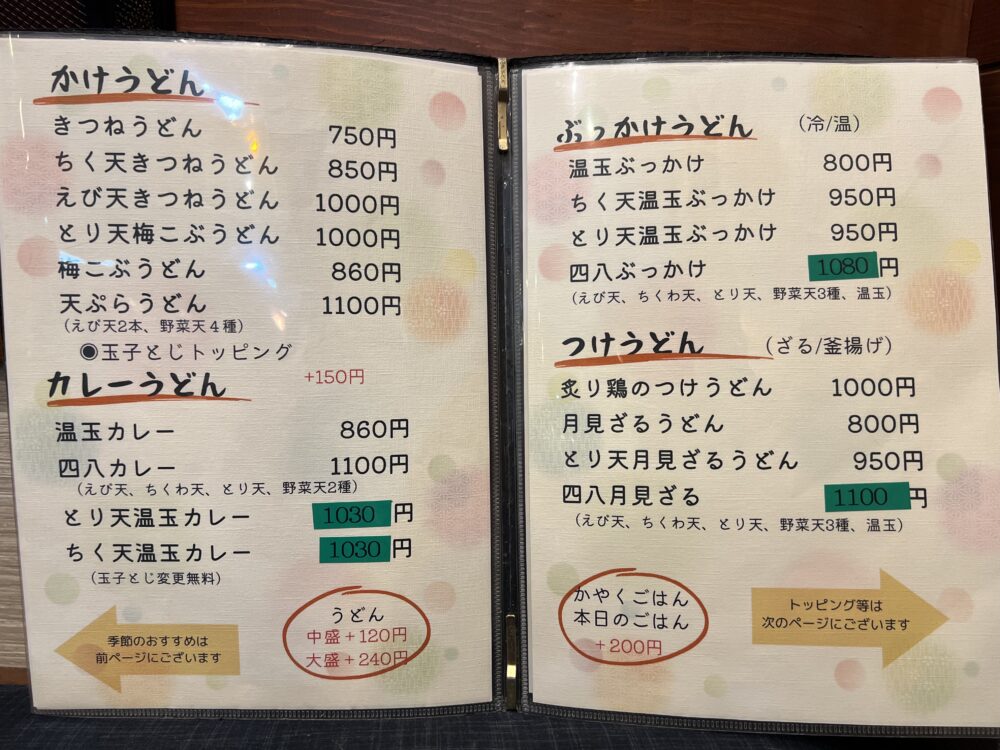 かけうどん
きつねうどん 750円
ちく天きつねうどん 850円
えび天きつねうどん 1000円
とり天梅こぶうどん 1000円
梅こぶうどん 860円
天ぷらうどん 1100円
(えび天2本、野菜天4種)
◉玉子とじトッピング
+150円
カレーうどん
温玉カレー 860円
四八カレー 1100円
(えび天、ちくわ天、とり天、野菜天2種)
とり天温玉カレー 1030円
ちく天温玉カレー 1030円
(玉子とじ変更無料)
季節のおすすめは
前ページにございます
うどん
中盛+120円
大盛+240円
ぶっかけうどん (冷/温)
温玉ぶっかけ 800円
ちく天温玉ぶっかけ 950円
とり天温玉ぶっかけ 950円
四八ぶっかけ 1080円
(えび天、ちくわ天、とり天、野菜天3種、温玉)
つけうどん (ざる/釜揚げ)
炙り鶏のつけうどん 1000円
月見ざるうどん 800円
とり天月見ざるうどん 950円
四八月見ざる 1100円
(えび天、ちくわ天、とり天、野菜天3種、温玉)
かやくごはん
本日のごはん
+200円
トッピング等は
次のページにございます